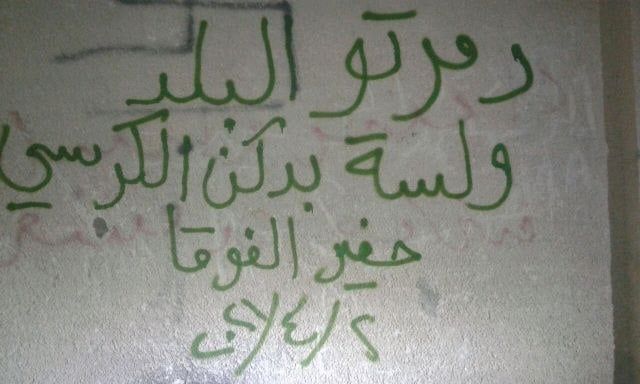 دمرتو البلد
ولسة بدكن الكرسي
حفير الفوقا